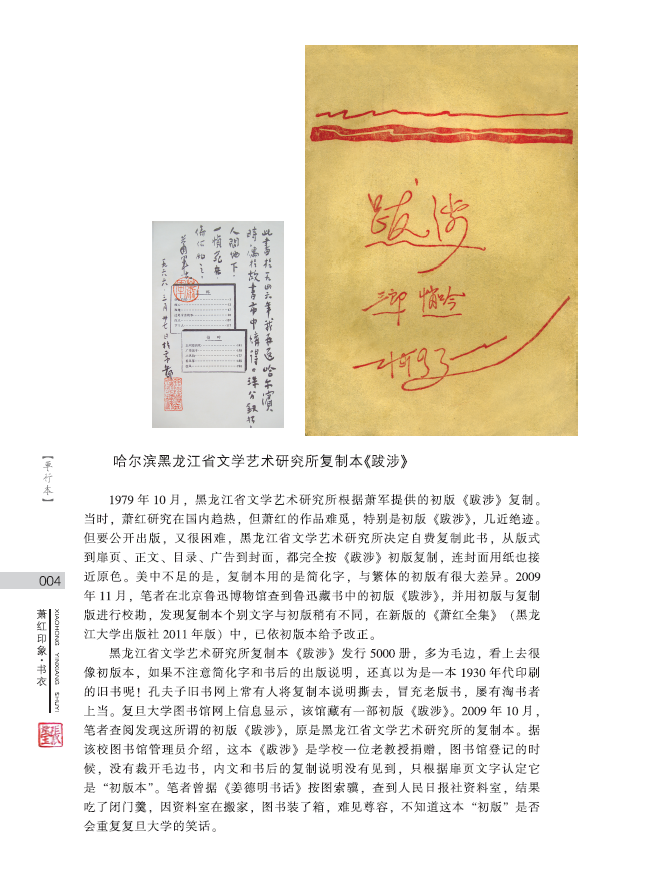 跋涉
三郎 悄吟
1933
此书于一九四六年我再过哈尔滨
时偶于故书市中购得。
人间地下
哈尔滨黑龙江省文学艺术研究所复制本《跋涉》
1979 年 10 月，黑龙江省文学艺术研究所根据萧军提供的初版《跋涉》复制。
当时，萧红研究在国内趋热，但萧红的作品难觅，特别是初版《跋涉》，几近绝迹。
但要公开出版，又很困难，黑龙江省文学艺术研究所决定自费复制此书，从版式
到扉页、正文、目录、广告到封面，都完全按《跋涉》初版复制，连封面用纸也接
近原色。美中不足的是，复制本用的是简化字，与繁体的初版有很大差异。2009
年 11 月，笔者在北京鲁迅博物馆查到鲁迅藏书中的初版《跋涉》，并用初版与复制
版进行校勘，发现复制本个别文字与初版稍有不同，在新版的《萧红全集》（黑龙
江大学出版社 2011 年版）中，已依初版本给予改正。
黑龙江省文学艺术研究所复制本《跋涉》发行 5000 册，多为毛边，看上去很
像初版本，如果不注意简化字和书后的出版说明，还真以为是一本 1930 年代印刷
的旧书呢！孔夫子旧书网上常有人将复制本说明撕去，冒充老版书，屡有淘书者
上当。复旦大学图书馆网上信息显示，该馆藏有一部初版《跋涉》。2009 年 10 月，
笔者查阅发现这所谓的初版《跋涉》，原是黑龙江省文学艺术研究所的复制本。据
该校图书馆管理员介绍，这本《跋涉》是学校一位老教授捐赠，图书馆登记的时
候，没有裁开毛边书，内文和书后的复制说明没有见到，只根据扉页文字认定它
是“初版本”。笔者曾据《姜德明书话》按图索骥，查到人民日报社资料室，结果
吃了闭门羹，因资料室在搬家，图书装了箱，难见尊容，不知道这本“初版”是否
会重复复旦大学的笑话。
【单行本】
004
萧红印象·书衣
XIAOHONG YINXIANG SHUYI